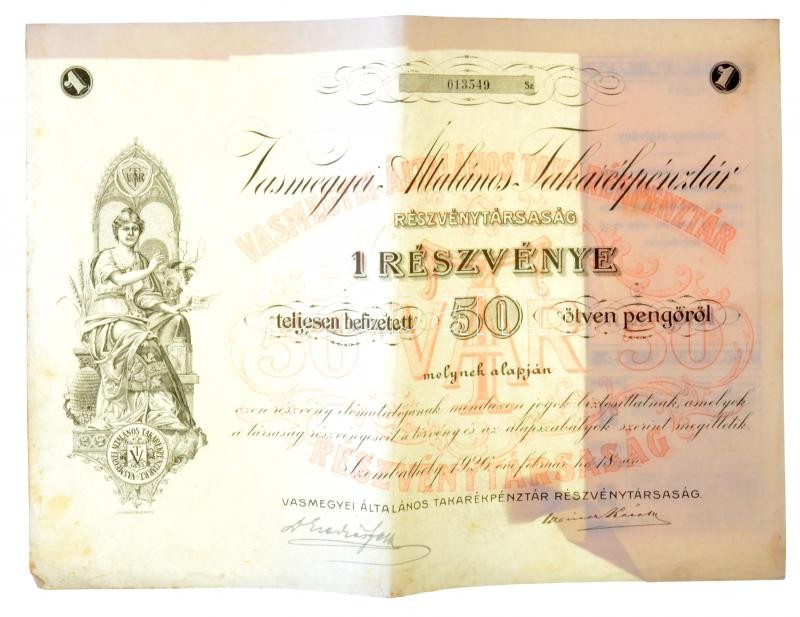 1
013549 Sz.
1
Vasmegyei Általános Takarékpénztár
VASMEGYEI ÁLTALÁNOS TAKARÉKPÉNZTÁR
RÉSZVÉNYTÁRSASÁG
1 RÉSZVÉNYE
teljesen befizetett 50 ötven pengőről
50 VÁRT 50
melynek alapján
ezen részvény előmutatójának mindazon jogok biztosíttatnak, amelyek
a társaság részvényeseit a törvény és az alapszabályok szerint megilletik.
RÉSZVÉNYTÁRSASÁG
Szombathely, 1926. évi február hó 18-án.
VASMEGYEI ÁLTALÁNOS TAKARÉKPÉNZTÁR RÉSZVÉNYTÁRSASÁG.
VASMEGYEI ÁLTALÁNOS TAKARÉKPÉNZTÁR